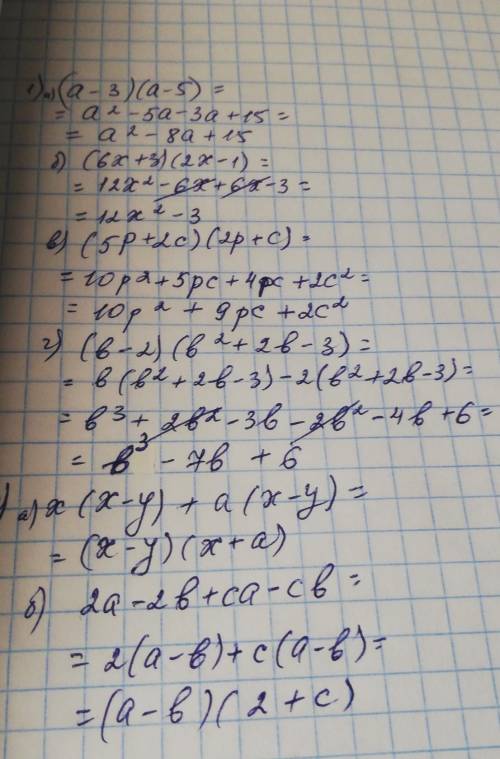 1) а) (a-3)(a-5) =
= a² - 5a - 3a + 15 =
= a² - 8a + 15
б) (6x+3)(2x-1) =
= 12x² - 6x + 6x - 3 =
= 12x² - 3
в) (5p+2c)(2p+c) =
= 10p² + 5pc + 4pc + 2c² =
= 10p² + 9pc + 2c²
г) (b-2)(b²+2b-3) =
= b(b²+2b-3) - 2(b²+2b-3) =
= b³ + 2b² - 3b - 2b² - 4b + 6 =
= b³ - 7b + 6
) а) x(x-y) + a(x-y) =
= (x-y)(x+a)
б) 2a - 2b + ca - cb =
= 2(a-b) + c(a-b) =
= (a-b)(2+c)